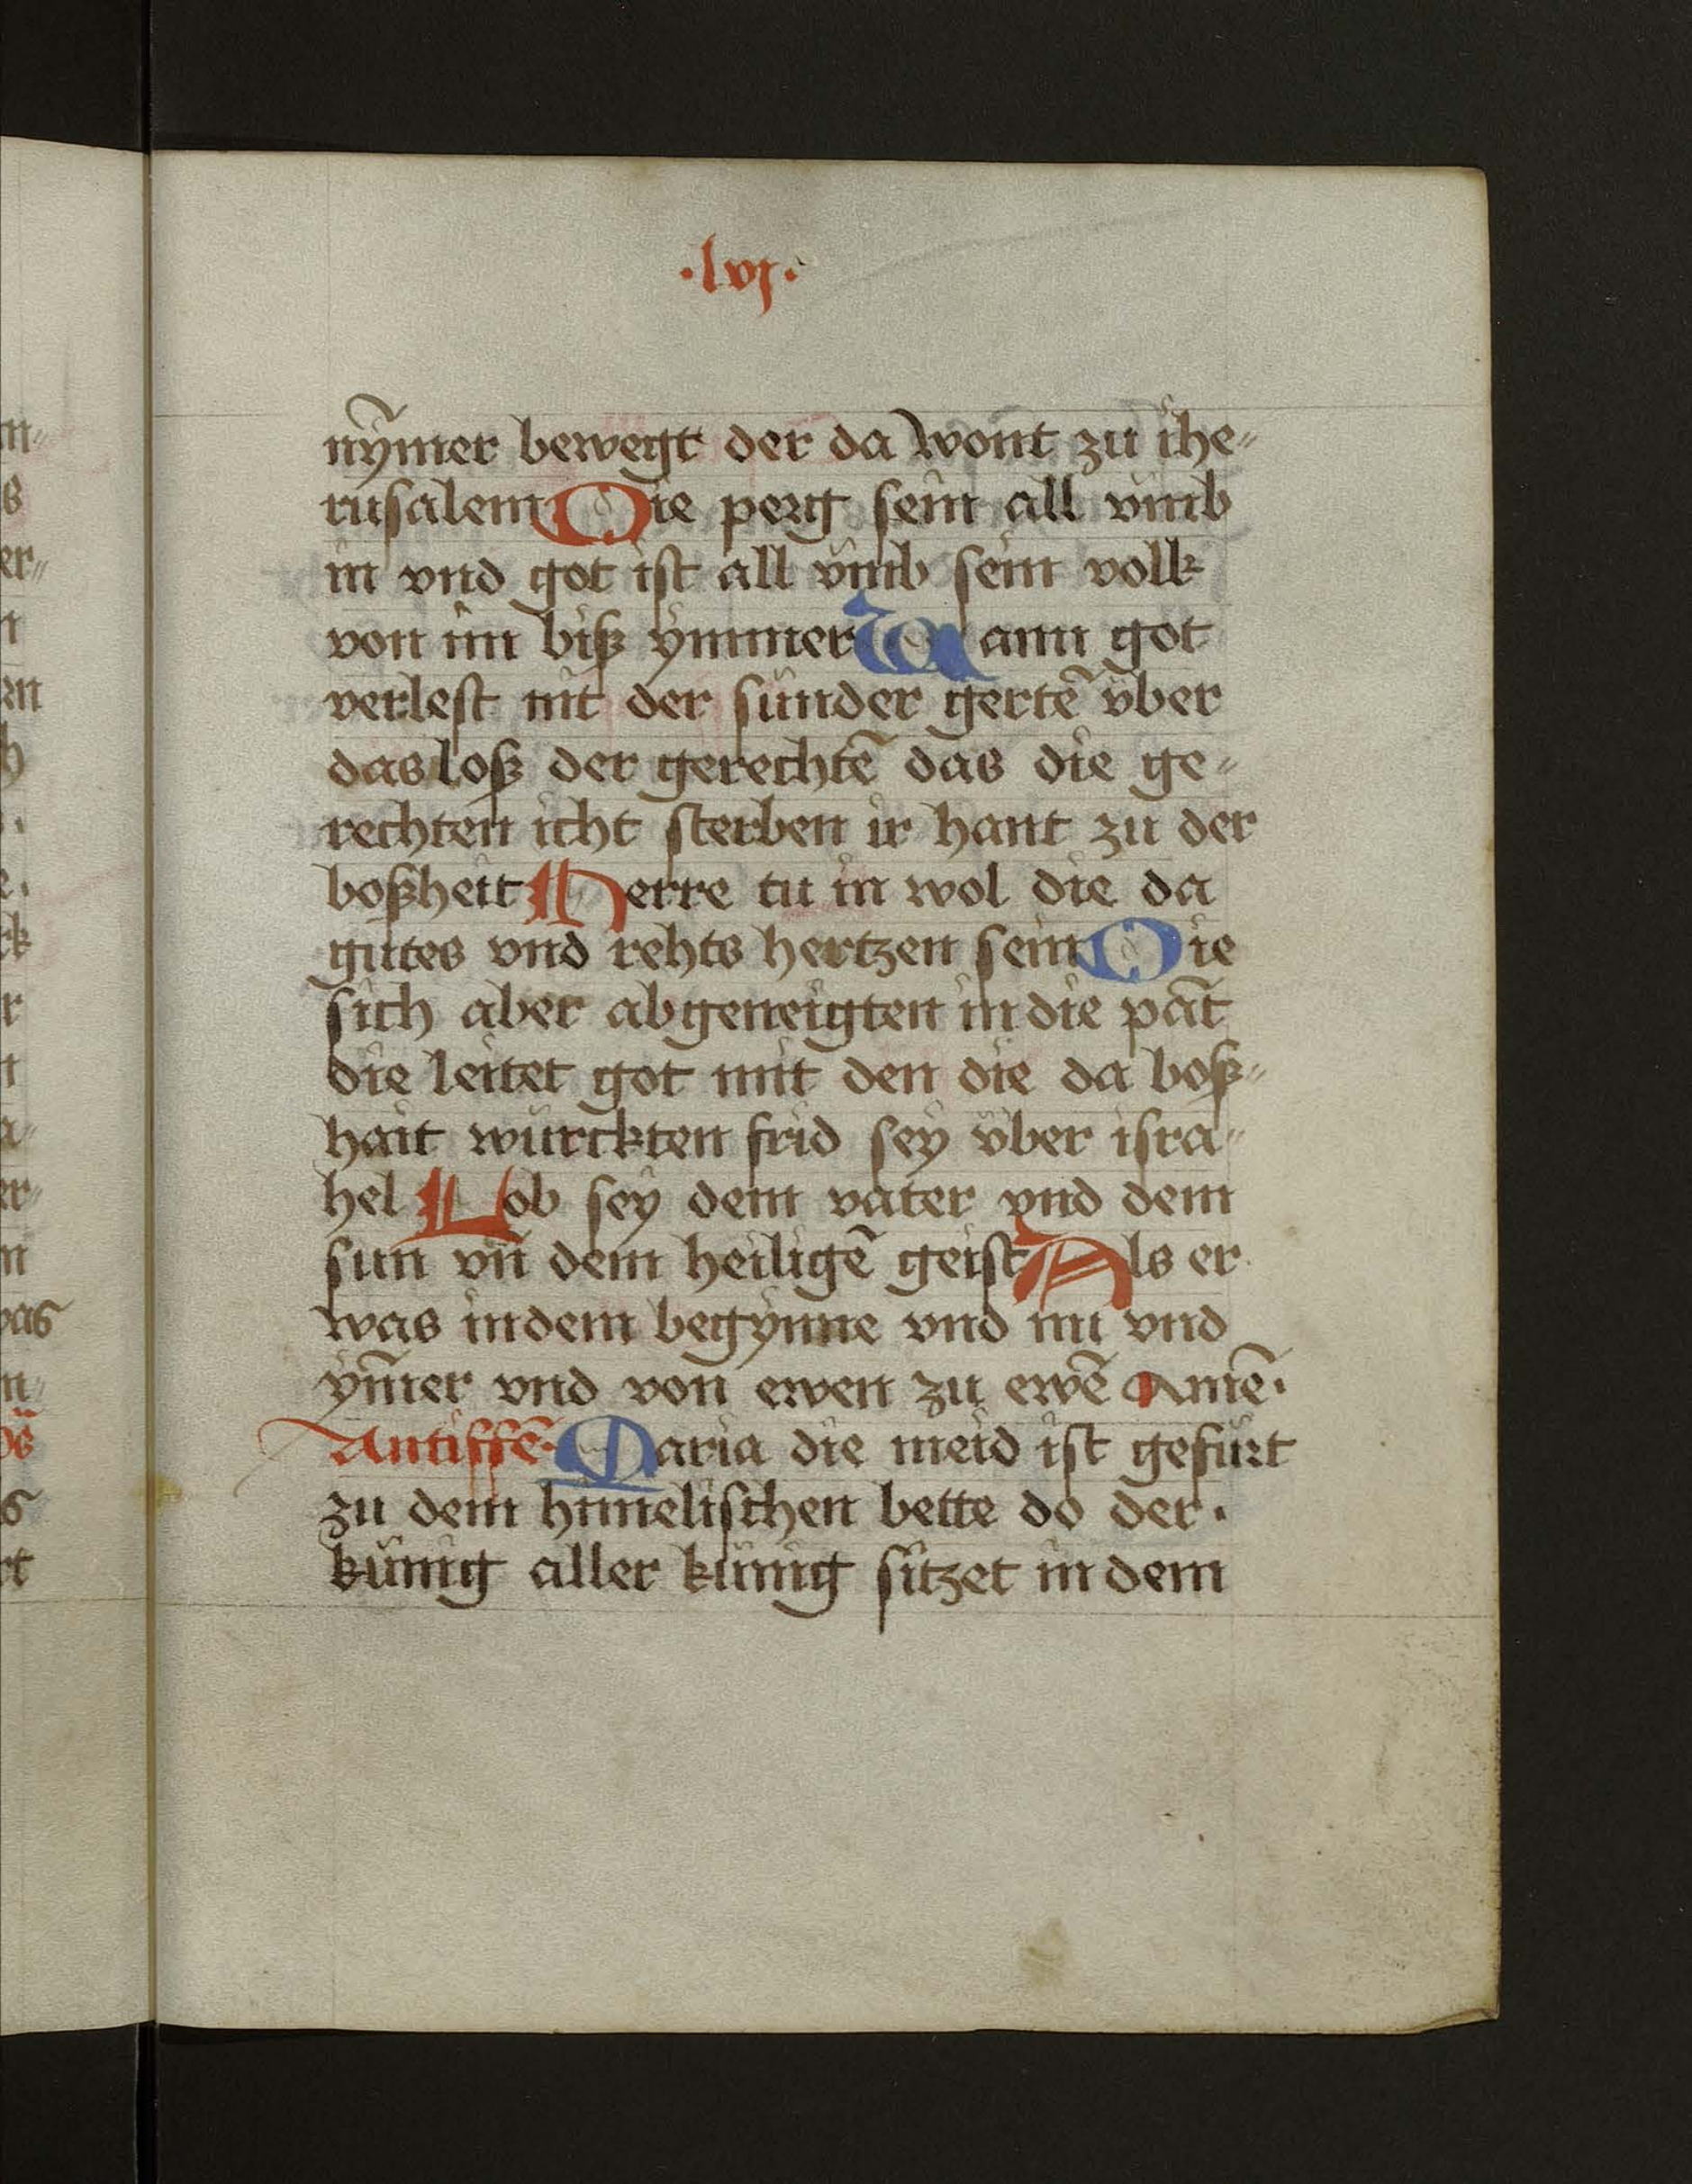 ·lvj·
nȳmer bewegt der da wont zu ihe⸗
rusalem Die perg sein all vmb
in vnd got ist all vmb sein volk
von im biß ymmer Wann got
verlest nit der sünder gertē vber
das loß der gerechtē das die ge⸗
rechten icht sterben ir hant zu der
boßheit Herre tu in wol die da
gutes vnd rehts hertzen sein Die
sich aber abgeneigten in die pāt
die leitet got mit den die da boß⸗
hait würckten frid sey vber isra⸗
hel Lob sey dem vater vnd dem
sun vn̄ dem heiligē geist Als er
was in dem begynne vnd nu vnd
ym̄er vnd von ewen zu ewē Amē·
Antiffē· Maria die meid ist gefürt
zu dem himelischen bette do der·
künig aller künig sitzet in dem